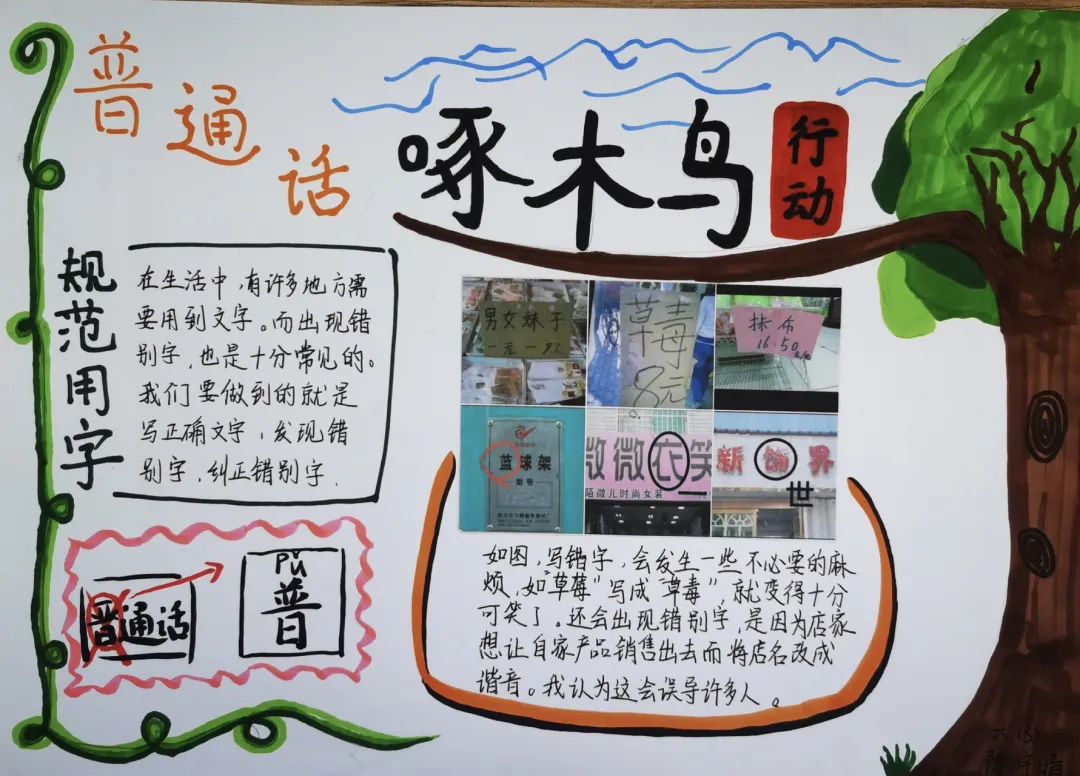 普通话
啄木鸟
行动
规范用字
在生活中,有许多地方需
要用到文字。而出现错
别字,也是十分常见的。
我们要做到的就是
写正确文字,发现错
别字,纠正错别字.
男女妹子
一元一双
草毒
8元
抹布
16.50
蓝球架
型号
微衣笑
一
陌微儿时尚女装
新饰界
世
通话
pǔ
普
如图,写错字,会发生一些不必要的麻
烦,如"草莓"写成"草毒",就变得十分
可笑了。还会出现错别字,是因为店家
想让自家产品销售出去而将店名改成
谐音。我认为这会误导许多人。
六(3)